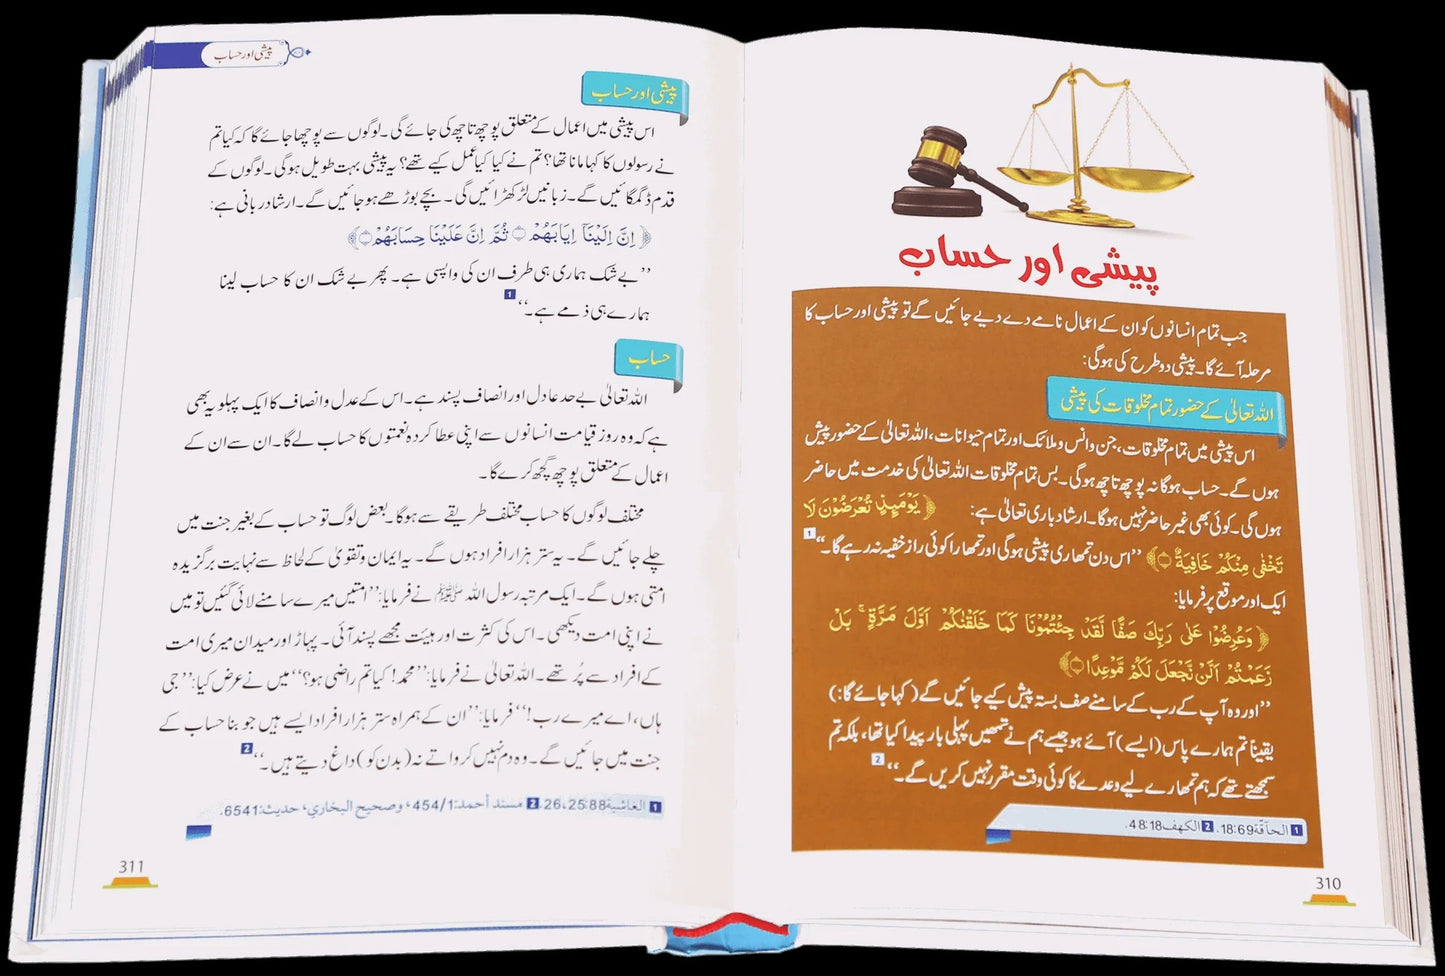 پیشی اور حساب
جب تمام انسانوں کو ان کے اعمال نامے دے دیے جائیں گے تو پیشی اور حساب کا
مرحلہ آئے گا۔ پیشی دو طرح کی ہوگی:
اللہ تعالیٰ کے حضور تمام مخلوقات کی پیشی
اس پیشی میں تمام مخلوقات، جن و انس و ملائک اور تمام حیوانات، اللہ تعالیٰ کے حضور پیش
ہوں گے۔ حساب ہوگا نہ پوچھ تاچھ ہوگی۔ بس تمام مخلوقات اللہ تعالیٰ کی خدمت میں حاضر
ہوں گی۔ کوئی بھی غیر حاضر نہیں ہوگا۔ ارشاد باری تعالیٰ ہے: ﴿ يَوْمَىِٕذٍ تُعْرَضُوْنَ لَا
تَخْفٰى مِنْكُمْ خَافِيَةٌ ۝﴾ ’’اس دن تمھاری پیشی ہوگی اور تمھارا کوئی راز خفیہ نہ رہے گا۔‘‘ 1
ایک اور موقع پر فرمایا:
﴿ وَعُرِضُوْا عَلٰى رَبِّكَ صَفًّا لَقَدْ جِئْتُمُوْنَا كَمَا خَلَقْنٰكُمْ اَوَّلَ مَرَّةٍ ۚ بَلْ
زَعَمْتُمْ اَلَّنْ نَّجْعَلَ لَكُمْ مَّوْعِدًا ۝﴾
’’اور وہ آپ کے رب کے سامنے صف بستہ پیش کیے جائیں گے (کہا جائے گا:)
یقیناً تم ہمارے پاس (ایسے) آئے ہو جیسے ہم نے تمھیں پہلی بار پیدا کیا تھا، بلکہ تم
سمجھتے تھے کہ ہم تمھارے لیے وعدے کا کوئی وقت مقرر نہیں کریں گے۔‘‘ 2
1 الحآقّة 18:69. 2 الكهف 48:18.
310
پیشی اور حساب
پیشی اور حساب
اس پیشی میں اعمال کے متعلق پوچھ تاچھ کی جائے گی۔ لوگوں سے پوچھا جائے گا کہ کیا تم
نے رسولوں کا کہا مانا تھا؟ تم نے کیا کیا عمل کیے تھے؟ یہ پیشی بہت طویل ہوگی۔ لوگوں کے
قدم ڈگمگائیں گے۔ زبانیں لڑکھڑائیں گی۔ بچے بوڑھے ہو جائیں گے۔ ارشاد ربانی ہے:
﴿ اِنَّ اِلَيْنَآ اِيَابَهُمْ ۝ ثُمَّ اِنَّ عَلَيْنَا حِسَابَهُمْ ۝﴾
’’بے شک ہماری ہی طرف ان کی واپسی ہے۔ پھر بے شک ان کا حساب لینا
ہمارے ہی ذمے ہے۔‘‘ 1
حساب
اللہ تعالیٰ بے حد عادل اور انصاف پسند ہے۔ اس کے عدل و انصاف کا ایک پہلو یہ بھی
ہے کہ وہ روز قیامت انسانوں سے اپنی عطا کردہ نعمتوں کا حساب لے گا۔ ان سے ان کے
اعمال کے متعلق پوچھ گچھ کرے گا۔
مختلف لوگوں کا حساب مختلف طریقے سے ہوگا۔ بعض لوگ تو حساب کے بغیر جنت میں
چلے جائیں گے۔ یہ ستر ہزار افراد ہوں گے۔ یہ ایمان و تقویٰ کے لحاظ سے نہایت برگزیدہ
امتی ہوں گے۔ ایک مرتبہ رسول اللہ ﷺ نے فرمایا: ’’امتیں میرے سامنے لائی گئیں تو میں
نے اپنی امت دیکھی۔ اس کی کثرت اور ہیئت مجھے پسند آئی۔ پہاڑ اور میدان میری امت
کے افراد سے پُر تھے۔ اللہ تعالیٰ نے فرمایا: ’’محمد! کیا تم راضی ہو؟‘‘ میں نے عرض کیا: ’’جی
ہاں، اے میرے رب!‘‘ فرمایا: ’’ان کے ہمراہ ستر ہزار افراد ایسے ہیں جو بنا حساب کے
جنت میں جائیں گے۔ وہ دم نہیں کرواتے نہ (بدن کو) داغ دیتے ہیں۔‘‘ 2
1 الغاشية 25:88، 26. 2 مسند أحمد: 454/1، وصحيح البخاري، حديث: 6541.
311